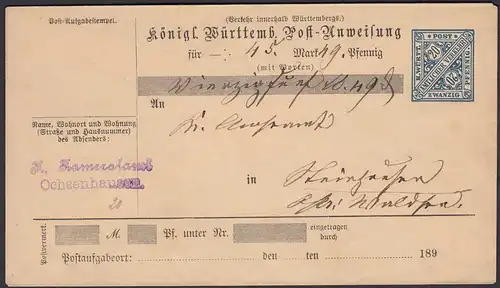 Post-Aufgabestempel.
(Verkehr innerhalb Württembergs.)
Königl. Württemb. Post-Anweisung
für —: 45 Mark 49 Pfennig
(mit Worten)
Vierzigfünf M. 49 ₰
An
K.
in
Steinhausen
Waldsee.
K. WÜRTT. POST
20
AMTLICHER VERKEHR
ZWANZIG PFENNIG
Name, Wohnort und Wohnung
(Straße und Hausnummer)
des Absenders:
K. Kameralamt
Ochsenhausen.
20
Postvermerk:
M.
Pf. unter Nr.
eingetragen
durch
Postaufgabeort:
den
ten
189